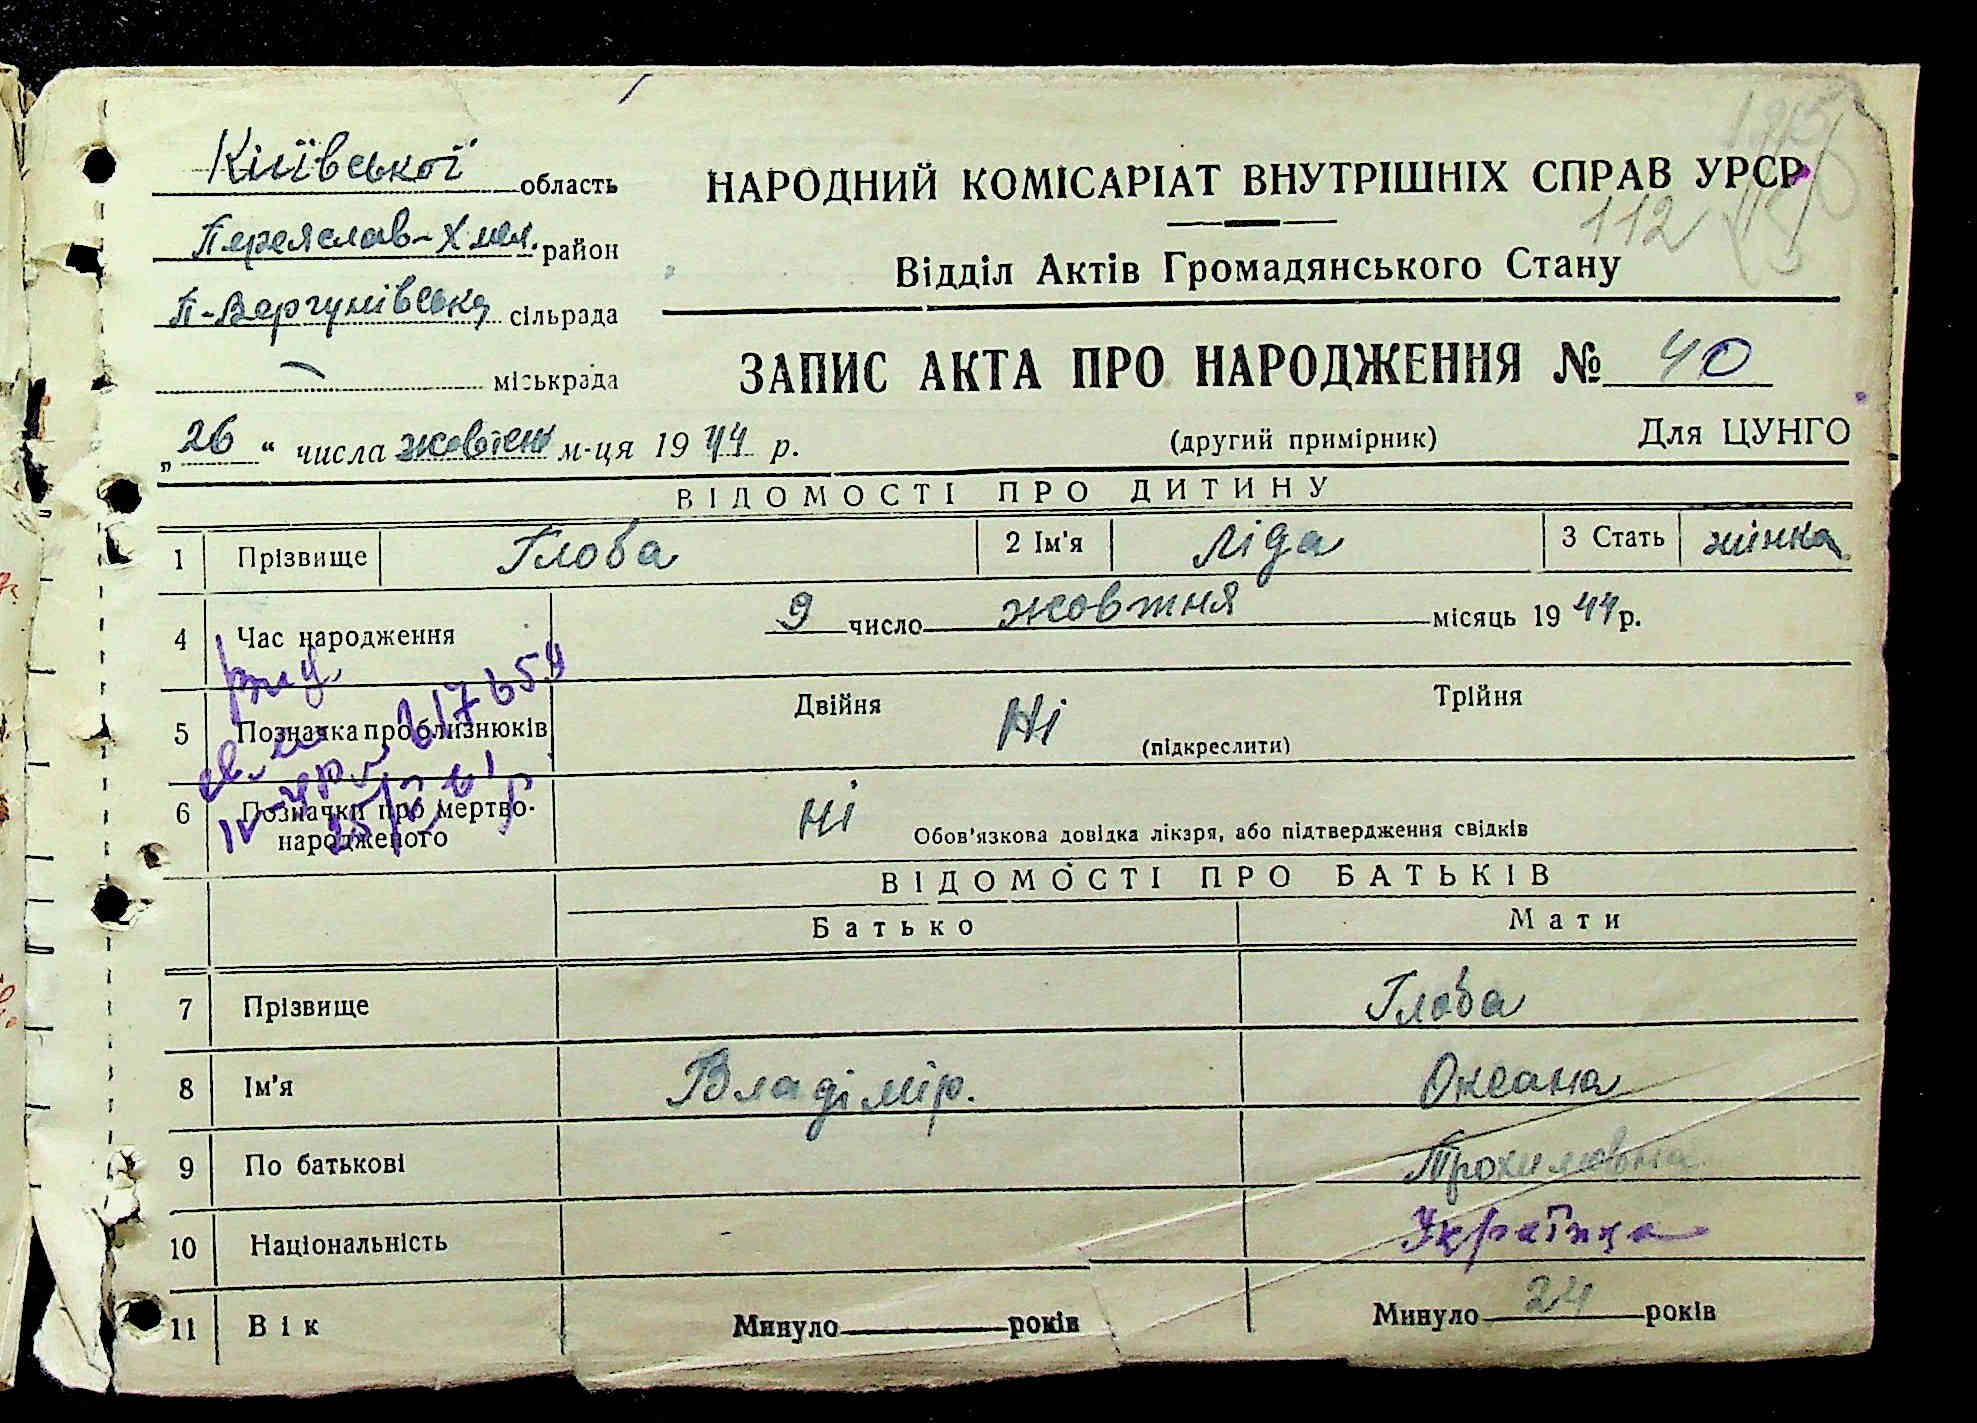 Київської область
Переяслав-Хмел. район
П-Воргунівська сільрада
міськрада
НАРОДНИЙ КОМІСАРІАТ ВНУТРІШНІХ СПРАВ УРСР
112
Відділ Актів Громадянського Стану
ЗАПИС АКТА ПРО НАРОДЖЕННЯ № 40
„26“ числа жовтень м-ця 1944 р.
(другий примірник) Для ЦУНГО
ВІДОМОСТІ ПРО ДИТИНУ
1 Прізвище Глоба 2 Ім'я Ліда 3 Стать жінка
4 Час народження 9 число жовтня місяць 1944 р.
5 Позначка про близнюків Двійня Ні (підкреслити) Трійня
6 Позначки про мертво-
народженого Ні Обов'язкова довідка лікаря, або підтвердження свідків
ВІДОМОСТІ ПРО БАТЬКІВ
Батько Мати
7 Прізвище Глоба
8 Ім'я Владімір. Оксана
9 По батькові Трохимовна
10 Національність Українка
11 Вік Минуло років Минуло 24 років